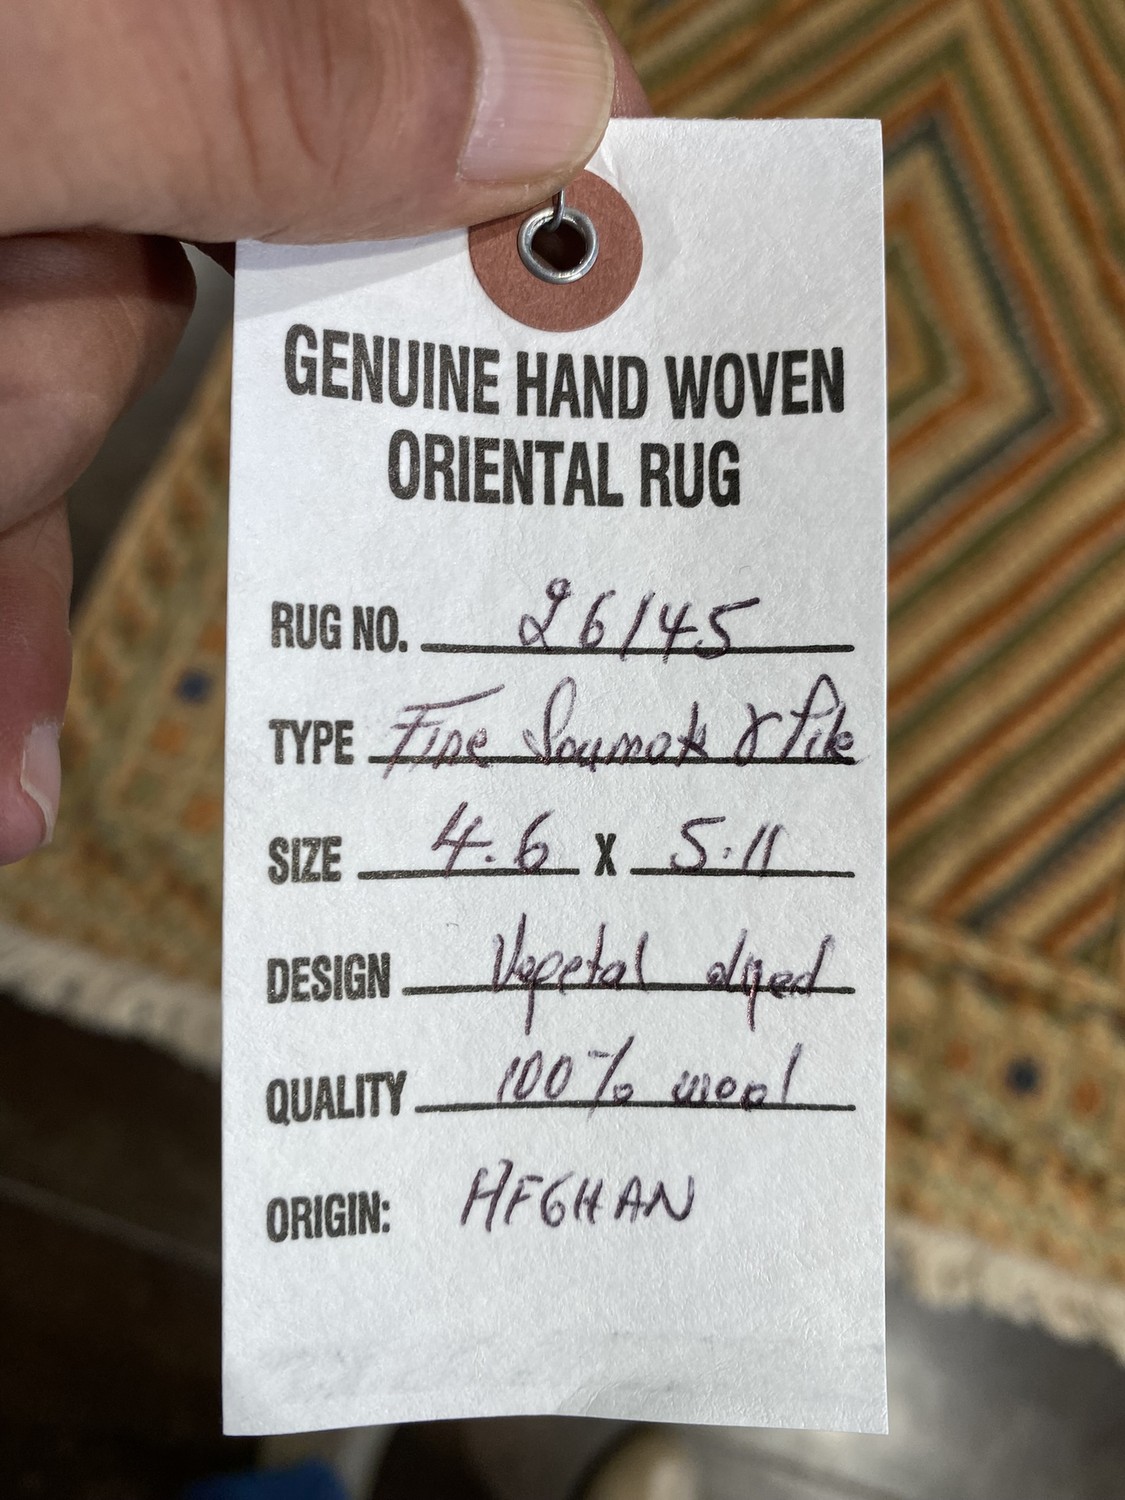 GENUINE HAND WOVEN
ORIENTAL RUG
RUG NO. 26145
TYPE Fine Soumak & Pile
SIZE 4.6 X 5.11
DESIGN Vegetal dyed
QUALITY 100% wool
ORIGIN: AFGHAN